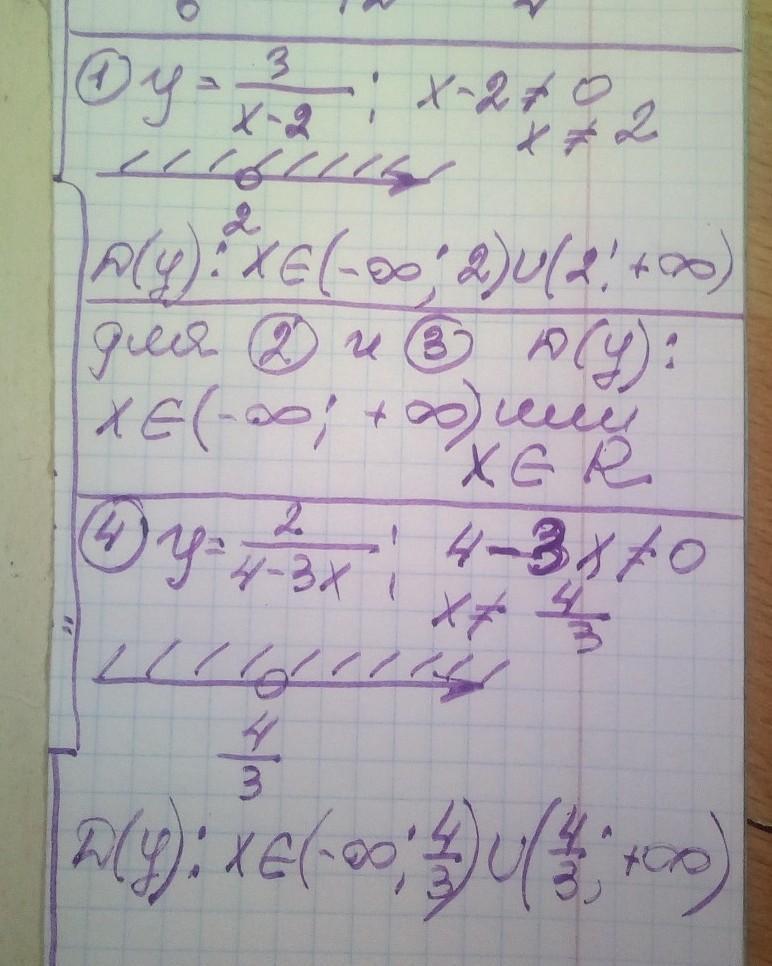 ① y = 3/(x-2) ; x-2≠0
x≠2
2
D(y): x∈(-∞; 2)∪(2; +∞)
для ② и ③ D(y):
x∈(-∞; +∞) или
x∈R
④ y = 2/(4-3x) ; 4-3x≠0
x≠ 4/3
4/3
D(y): x∈(-∞; 4/3)∪(4/3; +∞)